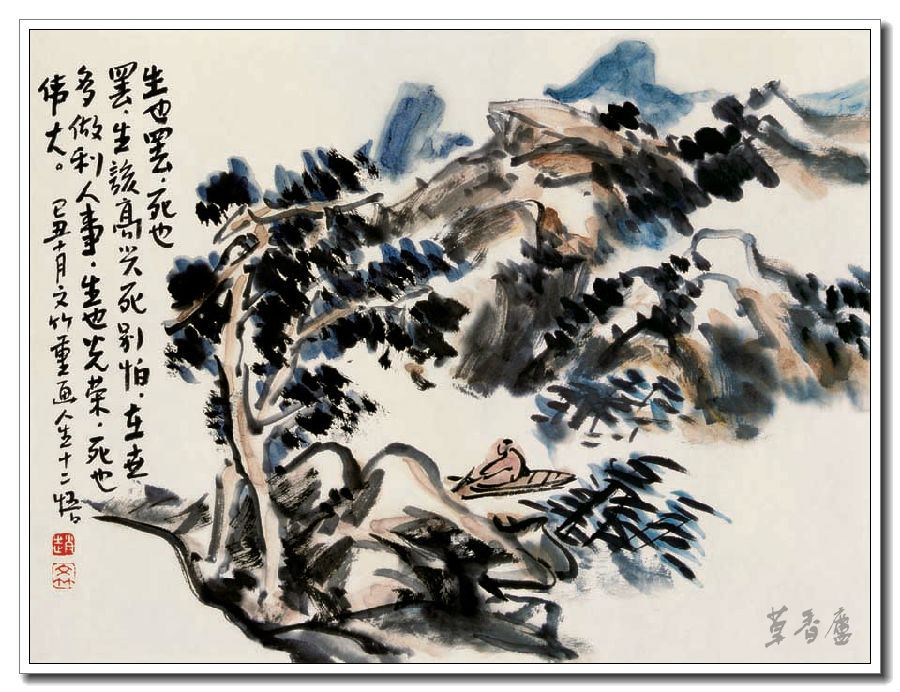 生也罢.死也
罢.生該高兴死别怕.在世
多做利人事.生也光荣.死也
伟大。己丑十月文竹重画人生十二悟
趙
文竹
草香廬